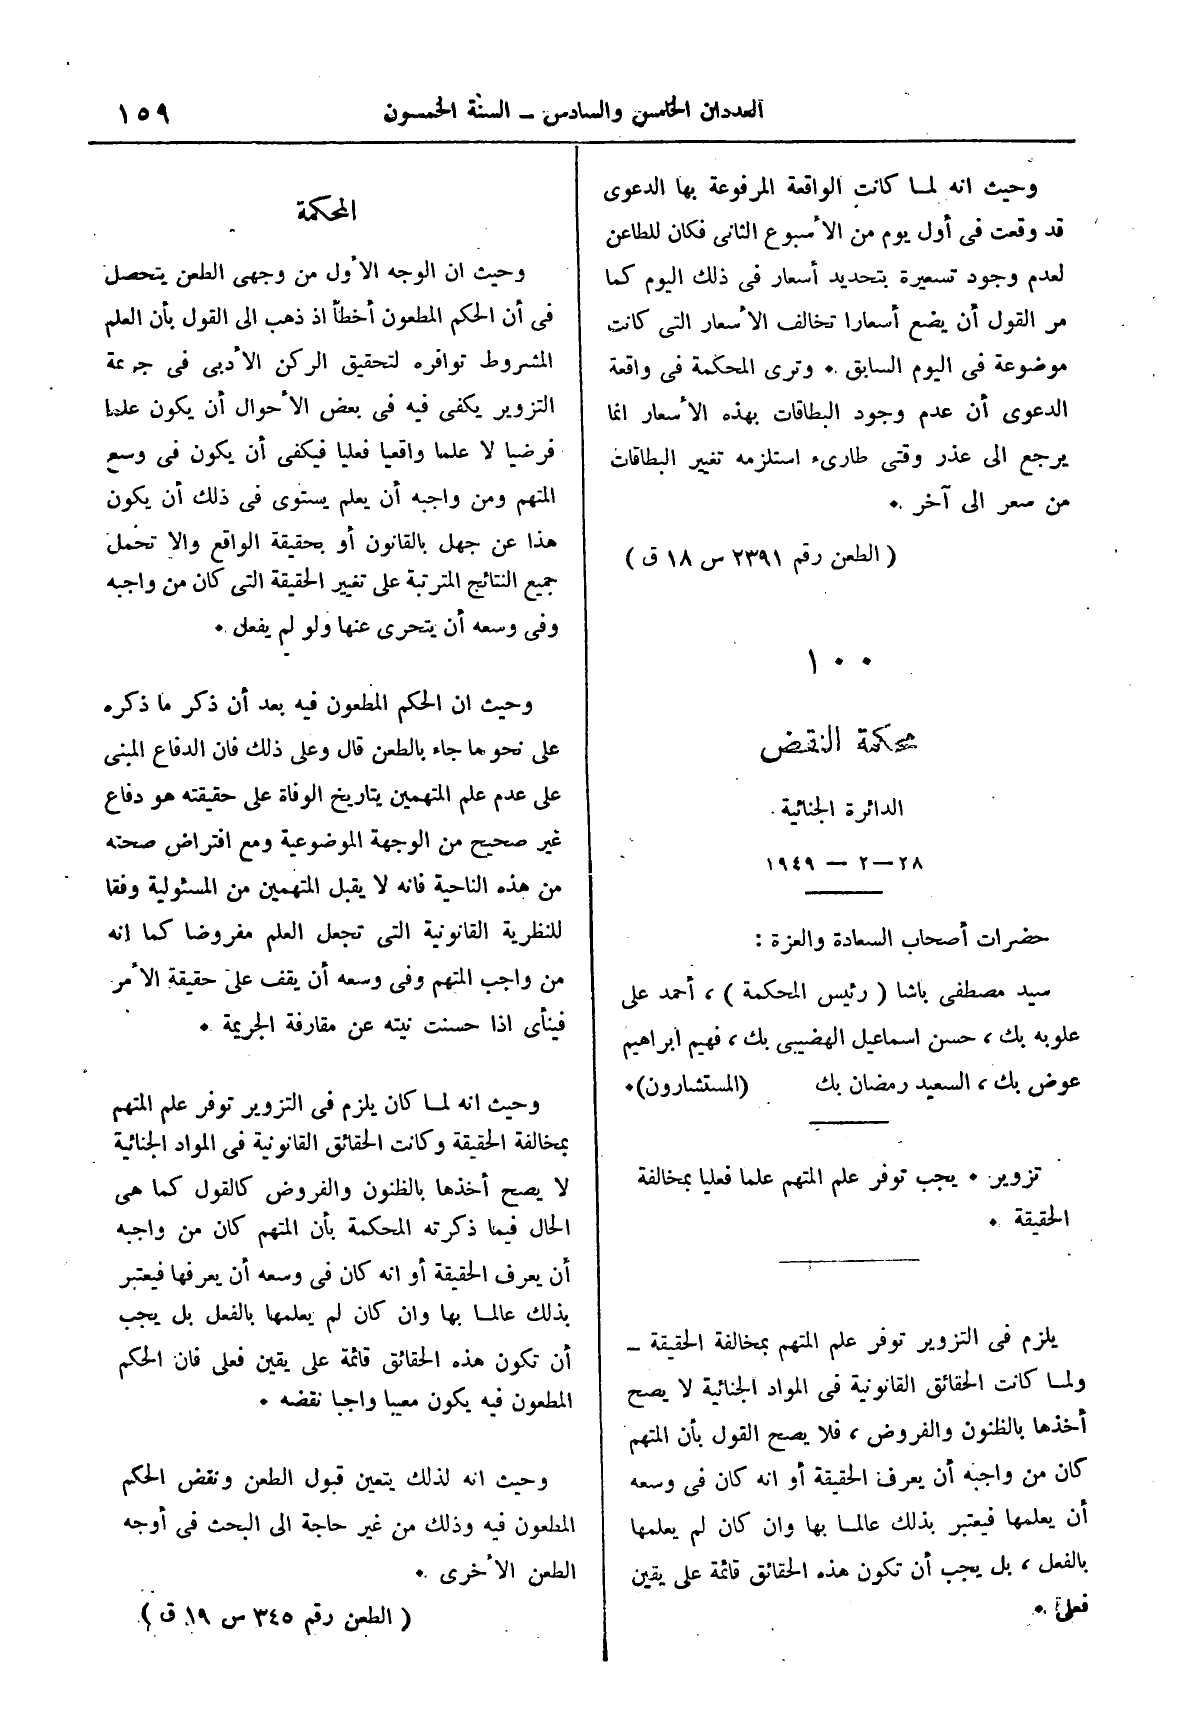 العددان الخامس والسادس – السنة الخمسون
١٥٩
وحيث انه لما كانت الواقعة المرفوعة بها الدعوى
قد وقعت فى أول يوم من الأسبوع الثانى فكان للطاعن
لعدم وجود تسعيرة بتحديد أسعار فى ذلك اليوم كما
مر القول أن يضع أسعارا تخالف الأسعار التى كانت
موضوعة فى اليوم السابق . وترى المحكمة فى واقعة
الدعوى أن عدم وجود البطاقات بهذه الأسعار انما
يرجع الى عذر وقتى طارىء استلزمه تغيير البطاقات
من سعر الى آخر .
( الطعن رقم ٢٣٩١ س ١٨ ق )
١٠٠
محكمة النقض
الدائرة الجنائية .
٢٨ – ٢ – ١٩٤٩
حضرات أصحاب السعادة والعزة :
سيد مصطفى باشا ( رئيس المحكمة ) ، أحمد على
علوبه بك ، حسن اسماعيل الهضيبى بك ، فهيم ابراهيم
عوض بك ، السعيد رمضان بك (المستشارون) .
تزوير . يجب توفر علم المتهم علما فعليا بمخالفة
الحقيقة .
يلزم فى التزوير توفر علم المتهم بمخالفة الحقيقة –
ولما كانت الحقائق القانونية فى المواد الجنائية لا يصح
أخذها بالظنون والفروض ، فلا يصح القول بأن المتهم
كان من واجبه أن يعرف الحقيقة أو انه كان فى وسعه
أن يعلمها فيعتبر بذلك عالما بها وان كان لم يعلمها
بالفعل ، بل يجب أن تكون هذه الحقائق قائمة على يقين
فعلى .
المحكمة
وحيث ان الوجه الأول من وجهى الطعن يتحصل
فى أن الحكم المطعون أخطأ اذ ذهب الى القول بأن العلم
المشروط توافره لتحقيق الركن الأدبى فى جريمة
التزوير يكفى فيه فى بعض الأحوال أن يكون علما
فرضيا لا علما واقعيا فعليا فيكفى أن يكون فى وسع
المتهم ومن واجبه أن يعلم يستوى فى ذلك أن يكون
هذا عن جهل بالقانون أو بحقيقة الواقع والا تحمل
جميع النتائج المترتبة على تغيير الحقيقة التى كان من واجبه
وفى وسعه أن يتحرى عنها ولو لم يفعل .
وحيث ان الحكم المطعون فيه بعد أن ذكر ما ذكره
على نحو ما جاء بالطعن قال وعلى ذلك فان الدفاع المبنى
على عدم علم المتهمين بتاريخ الوفاة على حقيقته هو دفاع
غير صحيح من الوجهة الموضوعية ومع افتراض صحته
من هذه الناحية فانه لا يقبل المتهمين من المسئولية وفقا
للنظرية القانونية التى تجعل العلم مفروضا كما انه
من واجب المتهم وفى وسعه أن يقف على حقيقة الأمر
فينأى اذا حسنت نيته عن مقارفة الجريمة .
وحيث انه لما كان يلزم فى التزوير توفر علم المتهم
بمخالفة الحقيقة وكانت الحقائق القانونية فى المواد الجنائية
لا يصح أخذها بالظنون والفروض كالقول كما هى
الحال فيما ذكرته المحكمة بأن المتهم كان من واجبه
أن يعرف الحقيقة أو انه كان فى وسعه أن يعرفها فيعتبر
بذلك عالما بها وان كان لم يعلمها بالفعل بل يجب
أن تكون هذه الحقائق قائمة على يقين فعلى فان الحكم
المطعون فيه يكون معيبا واجبا نقضه .
وحيث انه لذلك يتعين قبول الطعن ونقض الحكم
المطعون فيه وذلك من غير حاجة الى البحث فى أوجه
الطعن الأخرى .
( الطعن رقم ٣٤٥ س ١٩ ق )